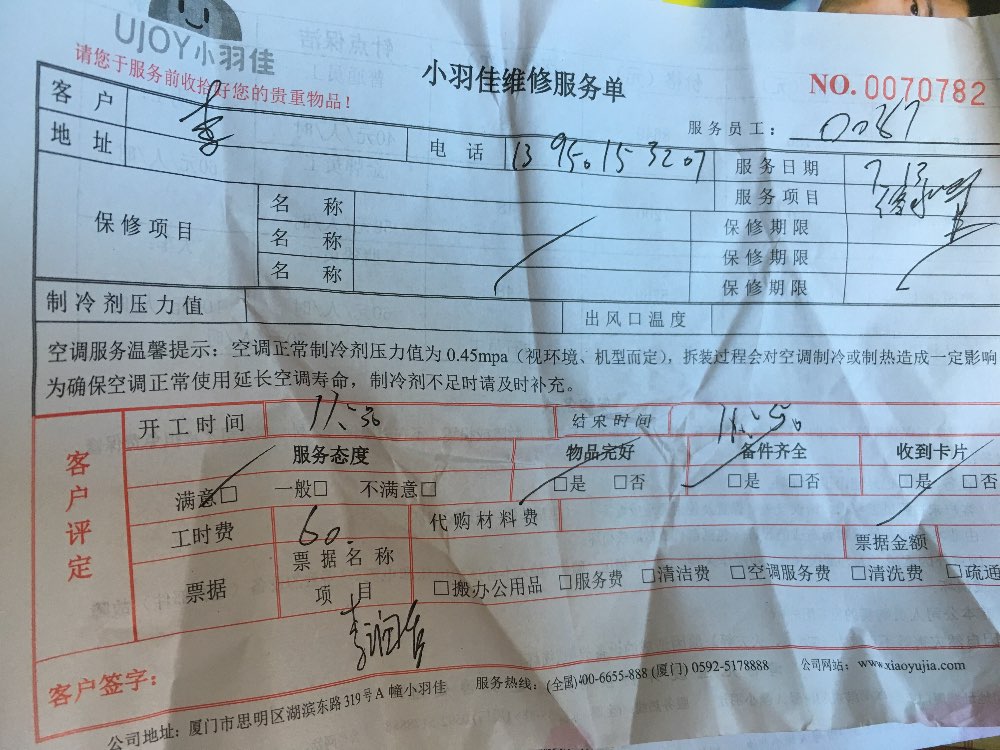 UJOY小羽佳
请您于服务前收拾好您的贵重物品！
小羽佳维修服务单
NO. 0070782
服务员工：
客户 李
地址
电话 13950153207
服务日期 7.13
服务项目
保修项目
名称 保修期限
名称 保修期限
名称 保修期限
制冷剂压力值 出风口温度
空调服务温馨提示：空调正常制冷剂压力值为0.45mpa（视环境、机型而定），拆装过程会对空调制冷或制热造成一定影响
为确保空调正常使用延长空调寿命，制冷剂不足时请及时补充。
客户评定
开工时间 结束时间
服务态度 物品完好 备件齐全 收到卡片
满意□ 一般□ 不满意□ □是 □否 □是 □否 □是 □否
工时费 60. 代购材料费
票据 票据名称 票据金额
项目 □搬办公用品 □服务费 □清洁费 □空调服务费 □清洗费 □疏通
客户签字：
公司地址：厦门市思明区湖滨东路319号A幢小羽佳 服务热线：(全国)400-6655-888 (厦门) 0592-5178888 公司网站：www.xiaoyujia.com